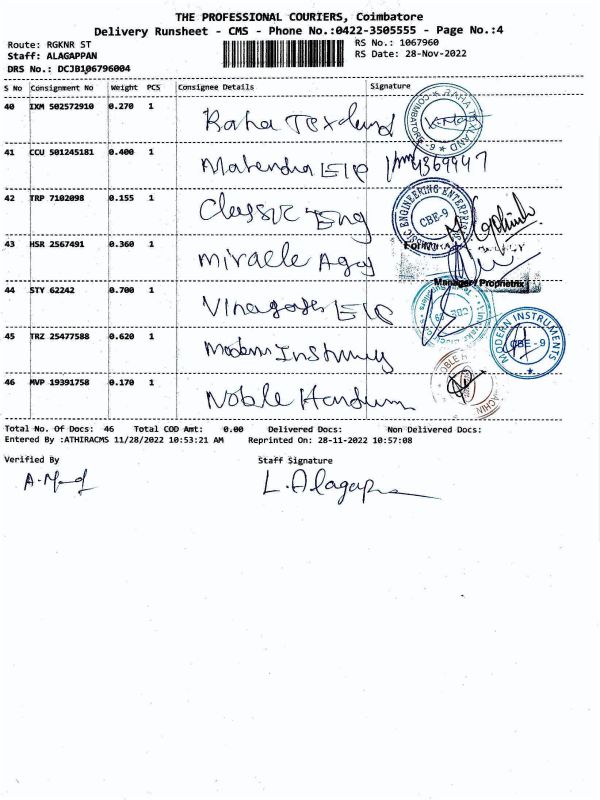 THE PROFESSIONAL COURIERS, Coimbatore
Delivery Runsheet - CMS - Phone No.:0422-3505555 - Page No.:4
Route: RGKNR ST RS No.: 1067960
Staff: ALAGAPPAN RS Date: 28-Nov-2022
DRS No.: DCJB106796004
S No Consignment No Weight PCS Consignee Details Signature
40 IXM 502572910 0.270 1 Raha
41 CCU 501245181 0.400 1 Mahendra 4369447
42 TRP 7102098 0.155 1 Classic Eng
CBE-9
43 HSR 2567491 0.360 1 Miracle
Manager / Proprietrix
44 STY 62242 0.700 1
45 TRZ 25477588 0.620 1 Modern
MODERN INSTRUMENTS CBE - 9
46 MVP 19391758 0.170 1 Noble
Total No. Of Docs: 46 Total COD Amt: 0.00 Delivered Docs: Non Delivered Docs:
Entered By :ATHIRACMS 11/28/2022 10:53:21 AM Reprinted On: 28-11-2022 10:57:08
Verified By Staff Signature